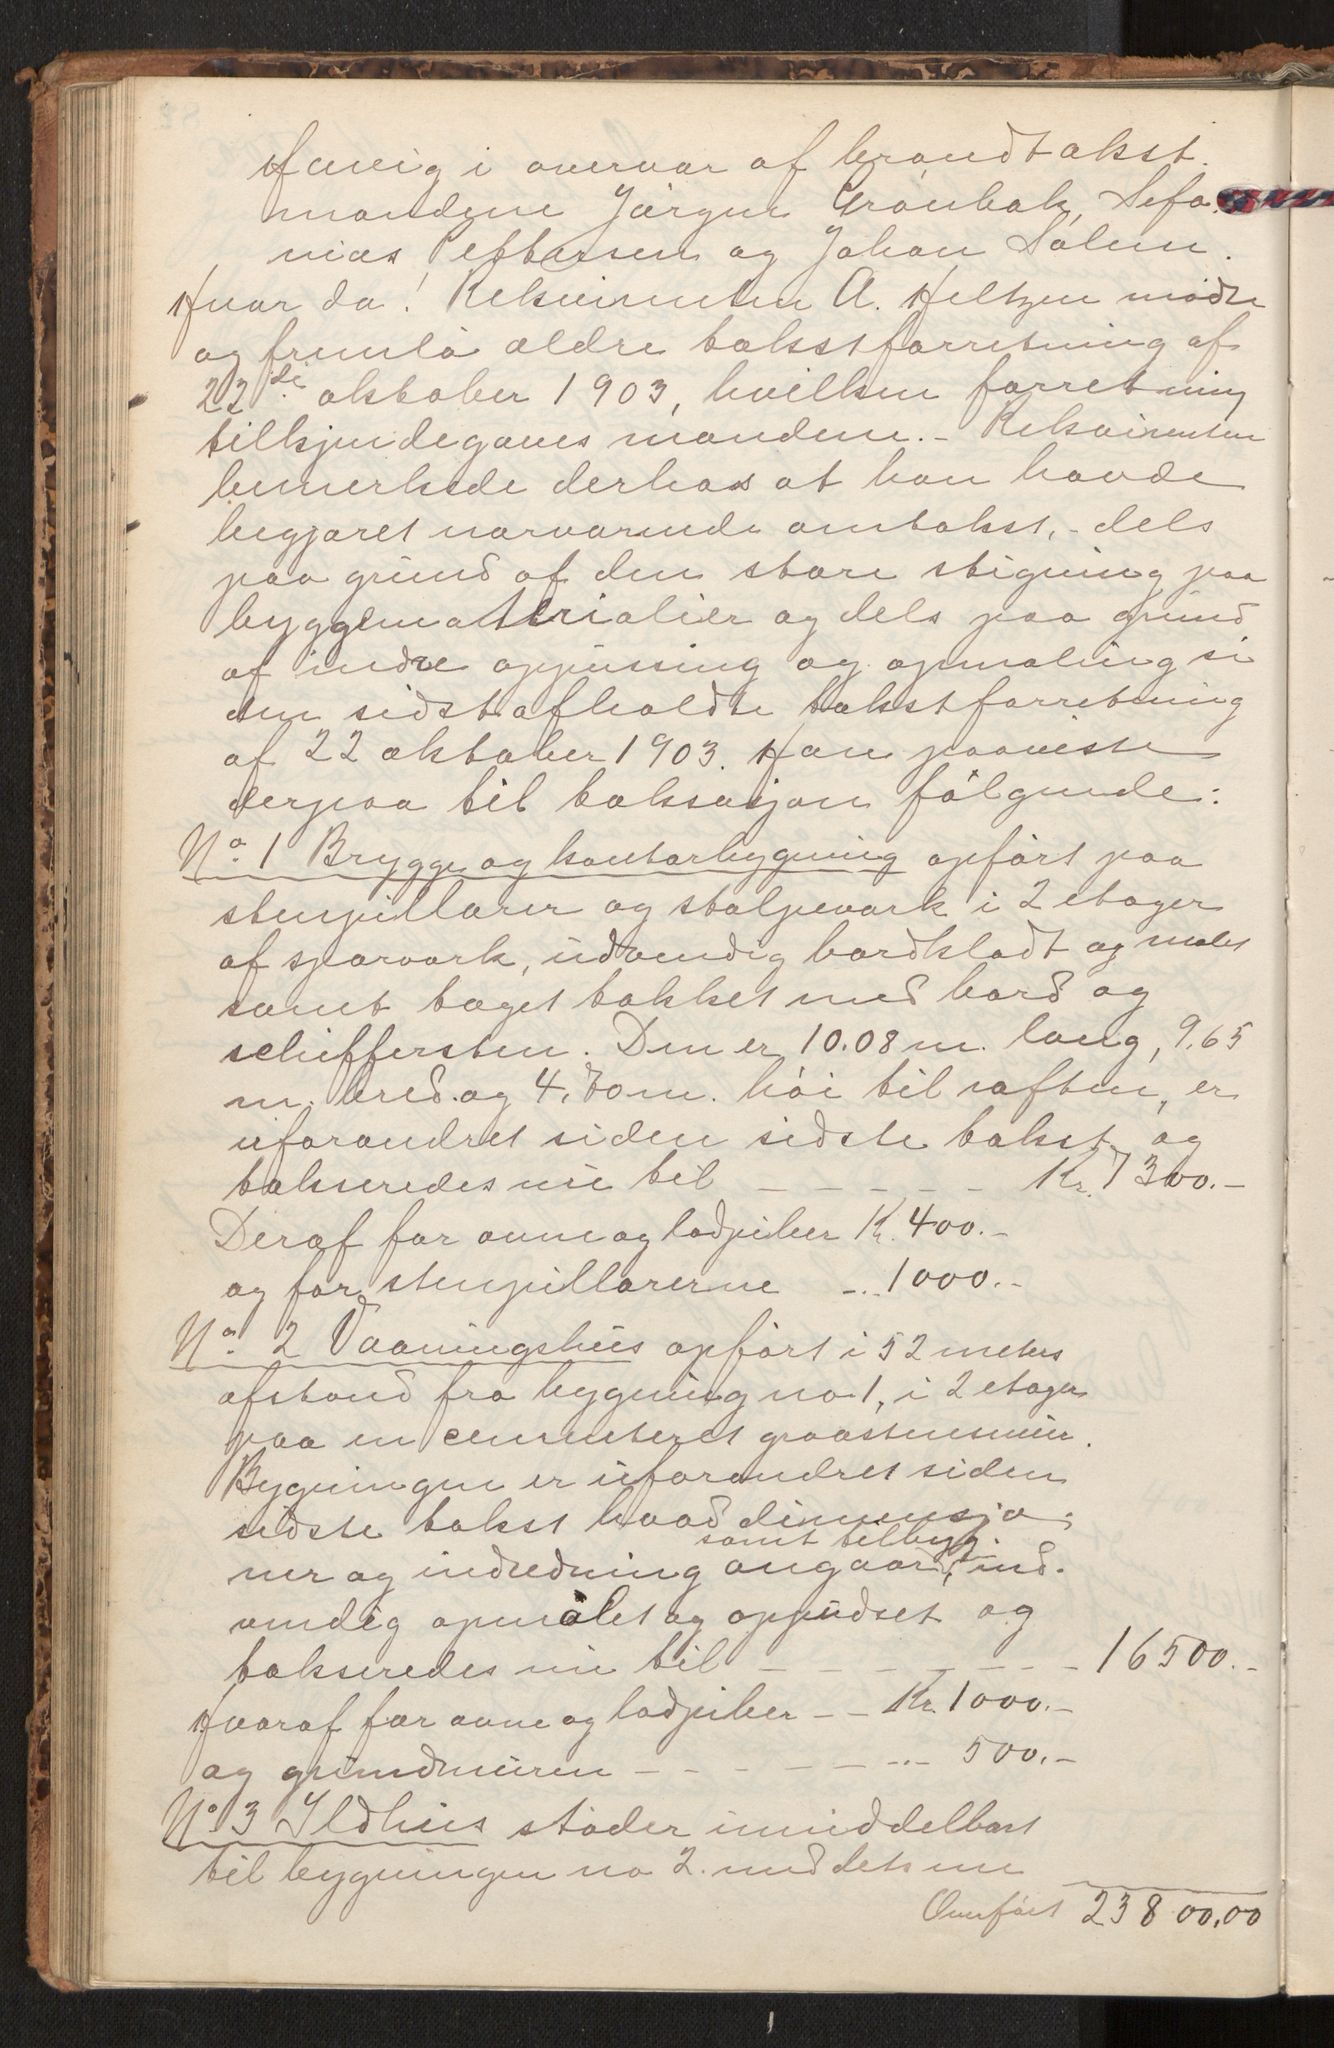 Aneig i overvær af brandtakst-
mændene Jørgen Grønbæk, Sefa-
nias Pettersen og Johan Solem.
Hvor da! Rekvirenten A. Heltzen mødte
og fremla ældre takstforretning af
22de oktober 1903, hvilken forretning
tilkjendegaves mændene. – Rekvirenten
bemerkede derhos at han havde
begjæret nærværende omtakst, – dels
paa grund af den store stigning paa
byggematerialier og dels paa grund
af indre oppussing og opmaling si
den sidst afholdte takstforretning
af 22 oktober 1903. Han paaviste
derpaa til taksasjon følgende:
No. 1 Brygge og kontorbygning opført paa
stenpillarer og stolpeverk i 2 etager
af sperverk, udvendig bordklædt og malet
samt taget tækket med bord og
schiffersten. Den er 10.08 m. lang, 9.65
m. bred. og 4.70 m. høi til raften, er
uforandret siden sidste takst og
takseredes nu til – – – – – Kr. 7300.–
Deraf for ovne og ladpiber Kr. 400.–
og for stenpillarerne – .. 1000.–
No. 2 Vaaningshus opført i 52 meters
afstand fra bygning no 1, i 2 etager
paa en cementeret graastensmur.
Bygningen er uforandret siden
sidste takst hvad dimensjo-
samt tilbyg.
ner og indredning angaar, ind-
vendig opmålet og oppudset og
takseredes nu til – – – – – – – 16500.–
Hvoraf for ovne og ladpiber – – Kr. 1000.–
og grundmuren – – – – – ... – 500.–
No 3 Ildhus støder umiddelbart
til bygningen no 2. med dets ene
Overført 23800,00